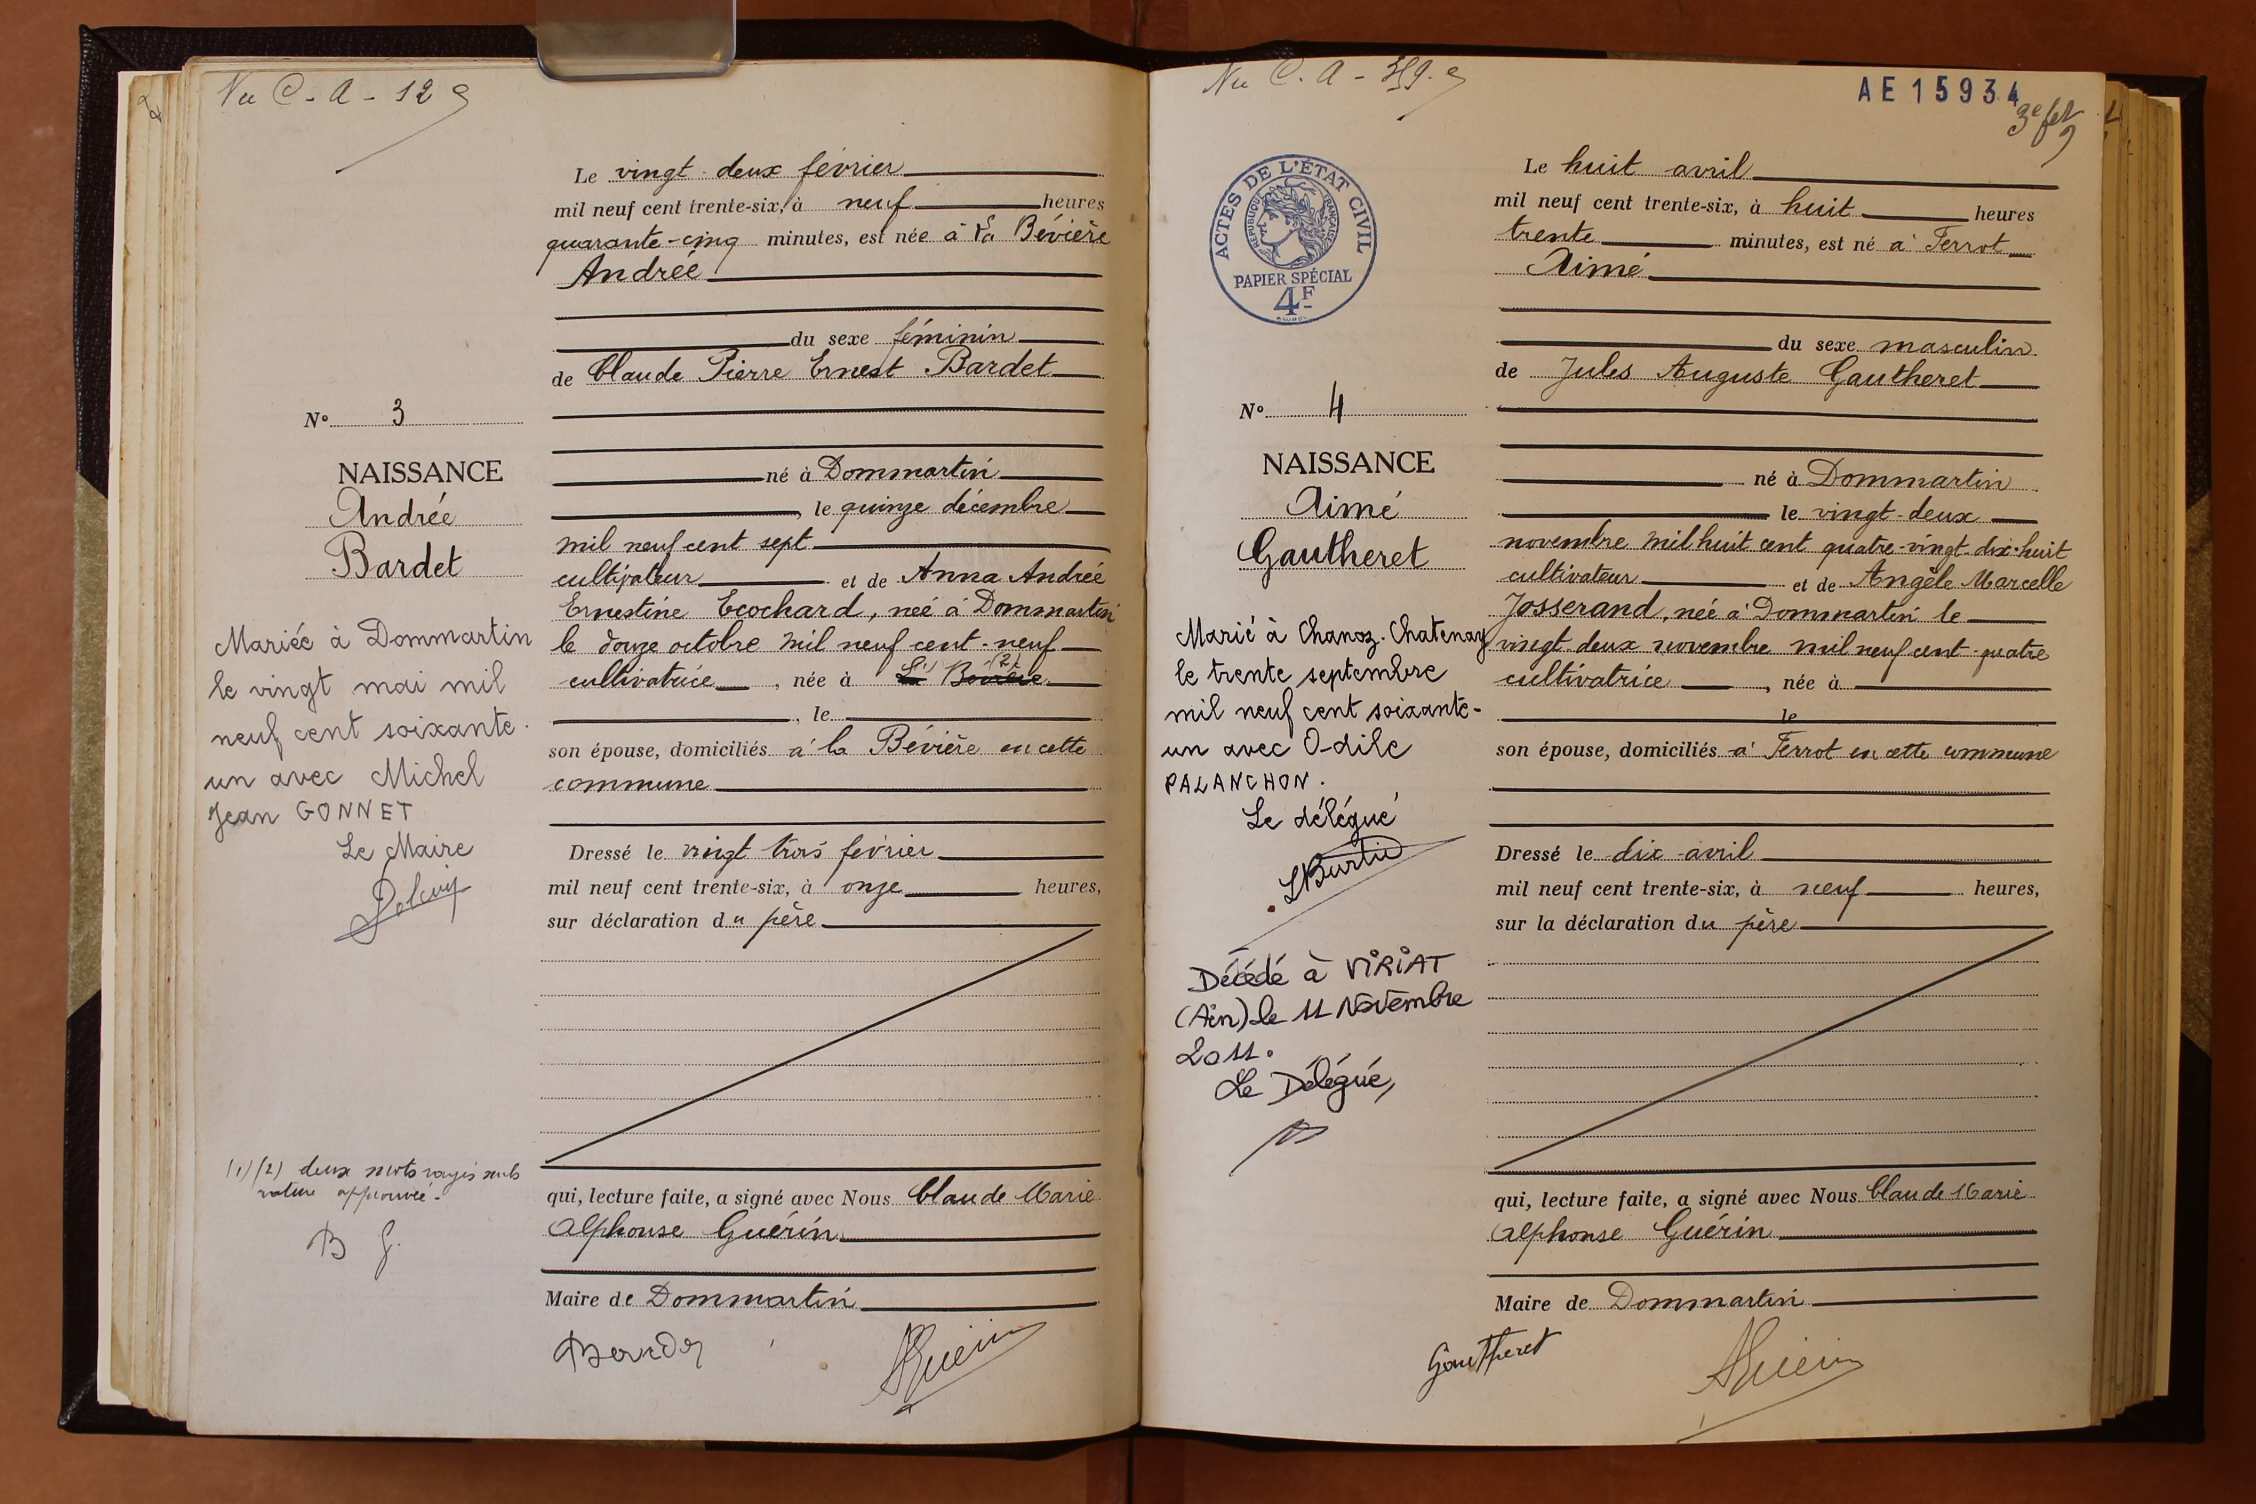 Vu C. A - 12
Le vingt-deux février
mil neuf cent trente-six, à neuf heures
quarante-cinq minutes, est née à la Bévière
Andrée
du sexe féminin
de Claude Pierre Ernest Bardet
N° 3
NAISSANCE
Andrée
Bardet
né à Dommartin
, le quinze décembre
mil neuf cent sept
cultivateur et de Anna Andrée
Ernestine Ecochard, née à Dommartin
le douze octobre mil neuf cent-neuf
cultivatrice, née à (1) La (2) Bévière
, le
son épouse, domiciliés à la Bévière en cette
commune
Mariée à Dommartin
le vingt mai mil
neuf cent soixante-
un avec Michel
Jean GONNET
Le Maire
Dressé le vingt trois février
mil neuf cent trente-six, à onze heures,
sur déclaration du père
(1) (2) deux mots rayés nuls
rature approuvée.
B G.
qui, lecture faite, a signé avec Nous Claude Marie
Alphonse Guérin
Maire de Dommartin
AGuérin
Vu C. A -
AE 15934
3e
ACTES DE L'ÉTAT CIVIL
RÉPUBLIQUE FRANÇAISE
PAPIER SPÉCIAL
4F
Le huit avril
mil neuf cent trente-six, à huit heures
trente minutes, est né à Terrot
Aimé
du sexe masculin
de Jules Auguste Gautheret
N° 4
NAISSANCE
Aimé
Gautheret
né à Dommartin
le vingt-deux
novembre mil huit cent quatre-vingt-dix-huit
cultivateur et de Angèle Marcelle
Josserand, née à Dommartin le
vingt-deux novembre mil neuf cent-quatre
cultivatrice, née à
le
son épouse, domiciliés à Terrot en cette commune
Marié à Chanoz-Chatenay
le trente septembre
mil neuf cent soixante-
un avec Odile
PALANCHON.
Le délégué
Décédé à VIRIAT
(Ain) le 11 Novembre
2011.
Le Délégué,
Dressé le dix avril
mil neuf cent trente-six, à neuf heures,
sur la déclaration du père
qui, lecture faite, a signé avec Nous Claude Marie
Alphonse Guérin
Maire de Dommartin
Gautheret
AGuérin